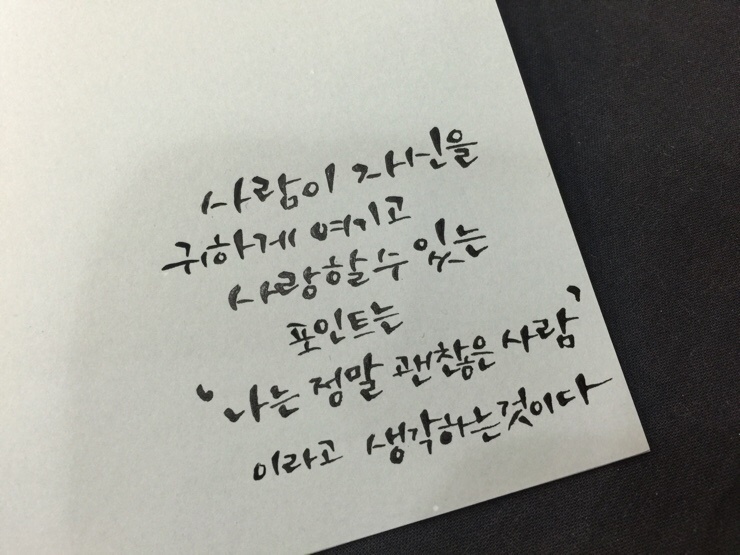 사람이 자신을
귀하게 여기고
사랑할 수 있는
포인트는
'나는 정말 괜찮은 사람'
이라고 생각하는것이다